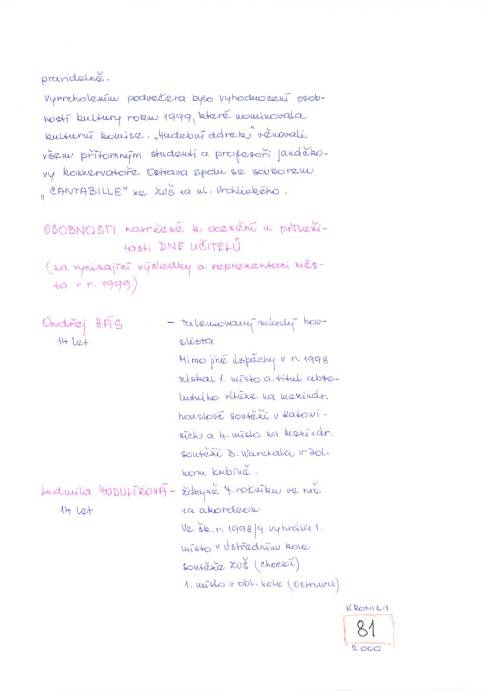 pravidelně.
Vyvrcholením podvečera bylo vyhodnocení osob-
ností kultury roku 1999, které nominovala
kulturní komise. „Hudební dárek" věnovali
všem přítomným studenti a profesoři Janáčko-
vy konzervatoře Ostrava spolu se souborem
„CANTABILLE" ze ZUŠ na ul. Vrchlického.
OSOBNOSTI navržené k ocenění u příleži-
tosti DNE UČITELŮ
(za vynikající výsledky a reprezentaci měs-
ta v r. 1999)
Ondřej HÁS - talentovaný mladý hou-
14 let slista
Mimo jiné úspěchy v r. 1998
získal 1. místo a titul abso-
lutního vítěze na mezinár.
houslové soutěži v Katowi-
cích a 4. místo na mezinár.
soutěži B. Warchala v Dol-
nom Kubíně.
Ludmila HODULÍKOVÁ - žákyně 7. ročníku ve hře
14 let na akordeon
Ve šk. r. 1998/9 vyhrála 1.
místo v Ústředním kole
soutěže ZUŠ (Choceň)
1. místo v obl. kole (Ostrava)
KRONIKA
81
2000